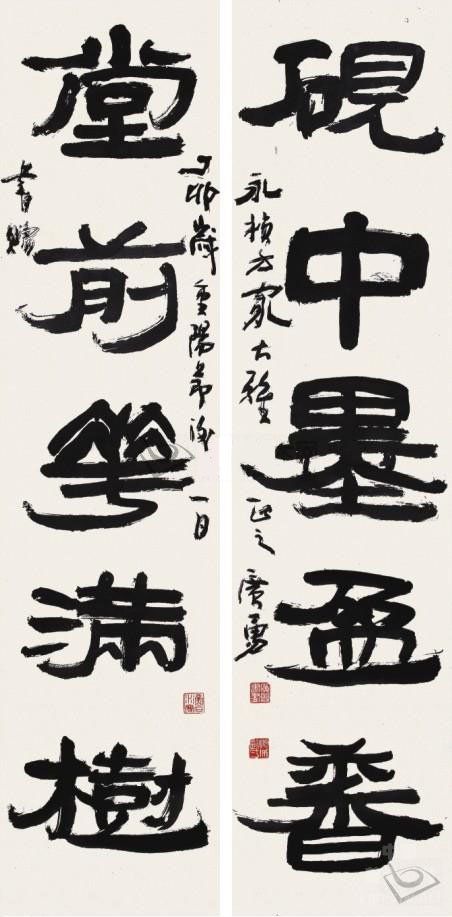 硯中墨盈香
永楨方家大雅 正之 廣勇
堂前華滿樹
丁卯歲重陽節後一日
書贈